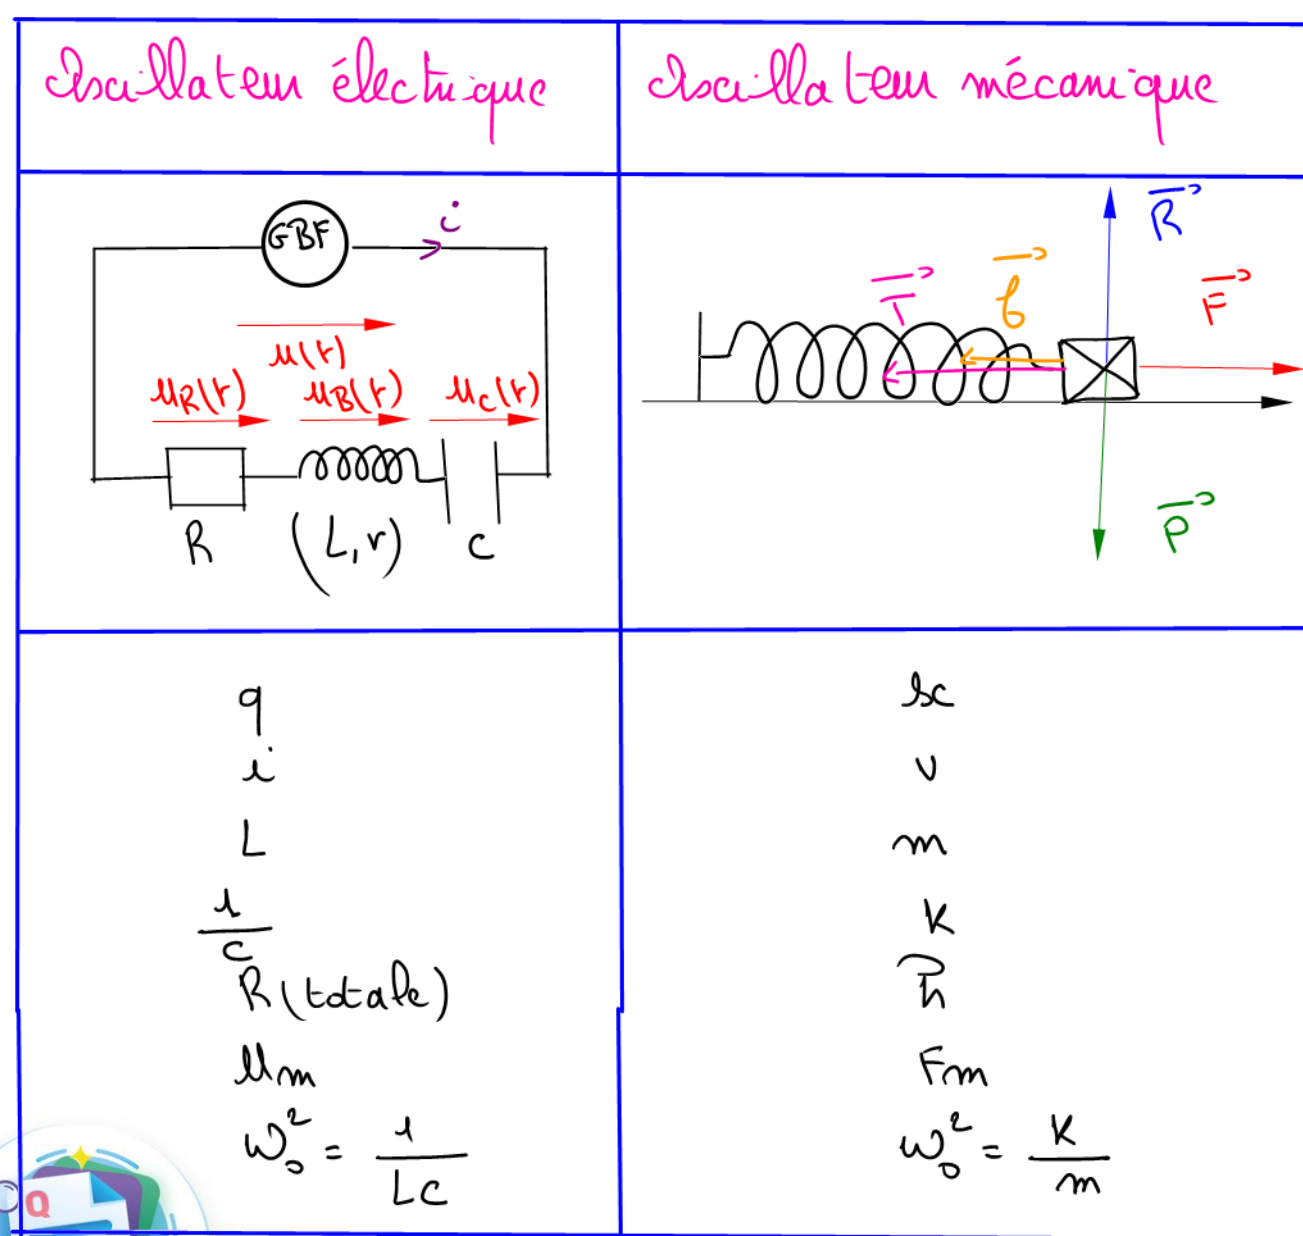 Oscillateur électrique
Oscillateur mécanique
GBF
i
u(t)
uR(t) uB(t) uC(t)
R (L,r) C
R
T f F
P
q
x
i
v
L
m
1/C
K
R (totale)
h
Um
Fm
ω₀² = 1/LC
ω₀² = K/m
Q